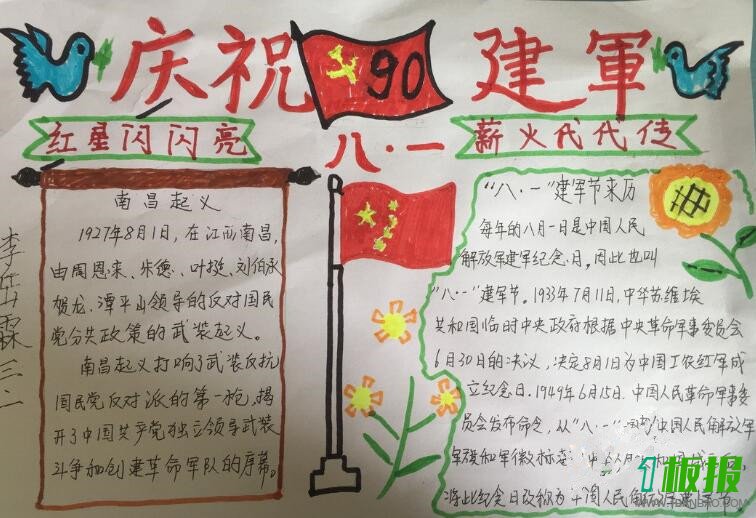 庆祝 90 建軍
红星闪闪亮
八·一
薪火代代传
南昌起义
1927年8月1日,在江西南昌,
由周恩来、朱德、叶挺、刘伯承
贺龙、谭平山领导的反对国民
党分共政策的武装起义。
南昌起义打响了武装反抗
国民党反对派的第一枪,揭
开了中国共产党独立领导武装
斗争和创建革命军队的序幕。
"八·一"建军节来历
每年的八月一日是中国人民
解放军建军纪念日。因此也叫
"八·一"建军节。1933年7月11日,中华苏维埃
共和国临时中央政府根据中央革命军事委员会
6月30日的决议,决定8月1为中国工农红军成
立纪念日.1949年6月15日.中国人民革命军事委
员会发布命令,从"八·一" 中国人民解放军
军旗和军徽标 中华人民 和国
此纪念日改称为中国人民解放军建军节
李 霖 三二
板报